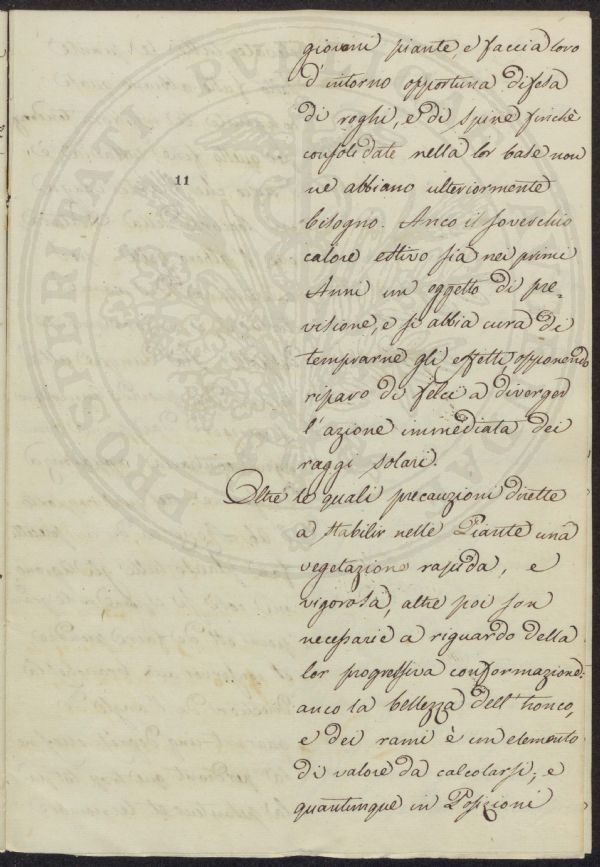 11
giovani piante, e faccia loro
d'intorno opportuna difesa
di roghi, e di spine finchè
consolidate nella lor base non
ne abbiano ulteriormente
bisogno. Anco il soverchio
calore estivo sia nei primi
Anni un oggetto di pre=
visione, e si abbia cura di
temprarne gli effetti opponendo
riparo di felci a diverger
l'azione immediata dei
raggi solari.
Oltre le quali precauzioni dirette
a stabilir nelle Piante una
vegetazione rapida, e
vigorosa, altre poi son
necessarie a riguardo della
lor progressiva conformazione:
anco la bellezza dell tronco,
e dei rami è un elemento
di valore da calcolarsi, e
quantunque in Posizioni
PROSPERITATI PUBLICAE